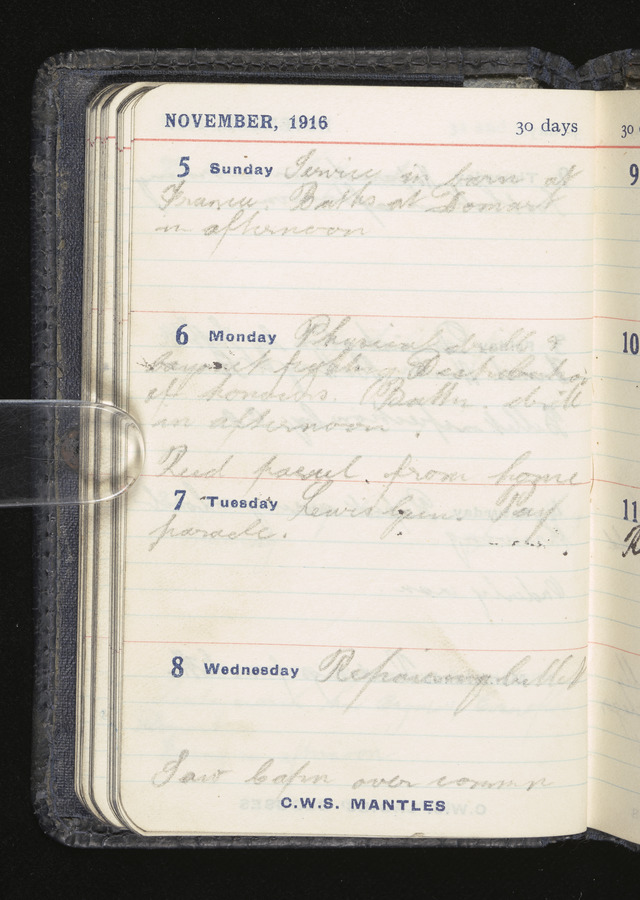 NOVEMBER, 1916 30 days
5 Sunday Service in barn at
France. Baths at Domart
in afternoon
6 Monday Physical drill &
bayonet fighting Distribution
of honours. Battn drill
in afternoon.
Recd parcel from home
7 Tuesday Lewis Gun. Pay
parade.
8 Wednesday Repairing billet
Saw Capn over commn
C.W.S. MANTLES
30
9
10
11